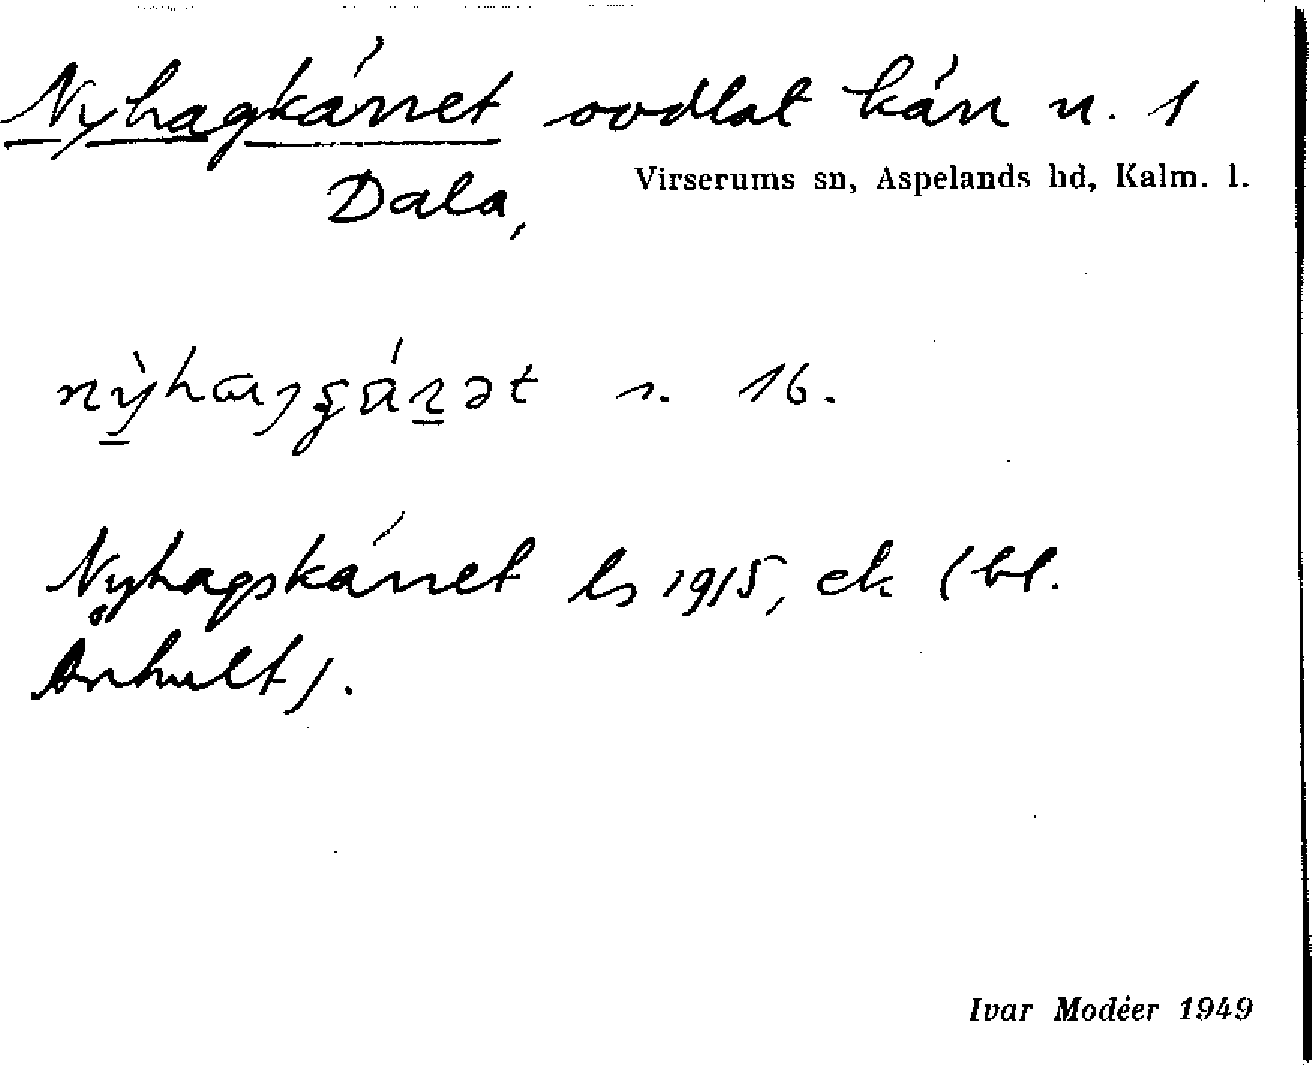 Nyhagkärret oodlat kärr n. 1
Dala,
Virserums sn, Aspelands hd, Kalm. l.
16.
Nyhagskärret ls 1915, ek (bl.
Ånhult).
Ivar Modéer 1949